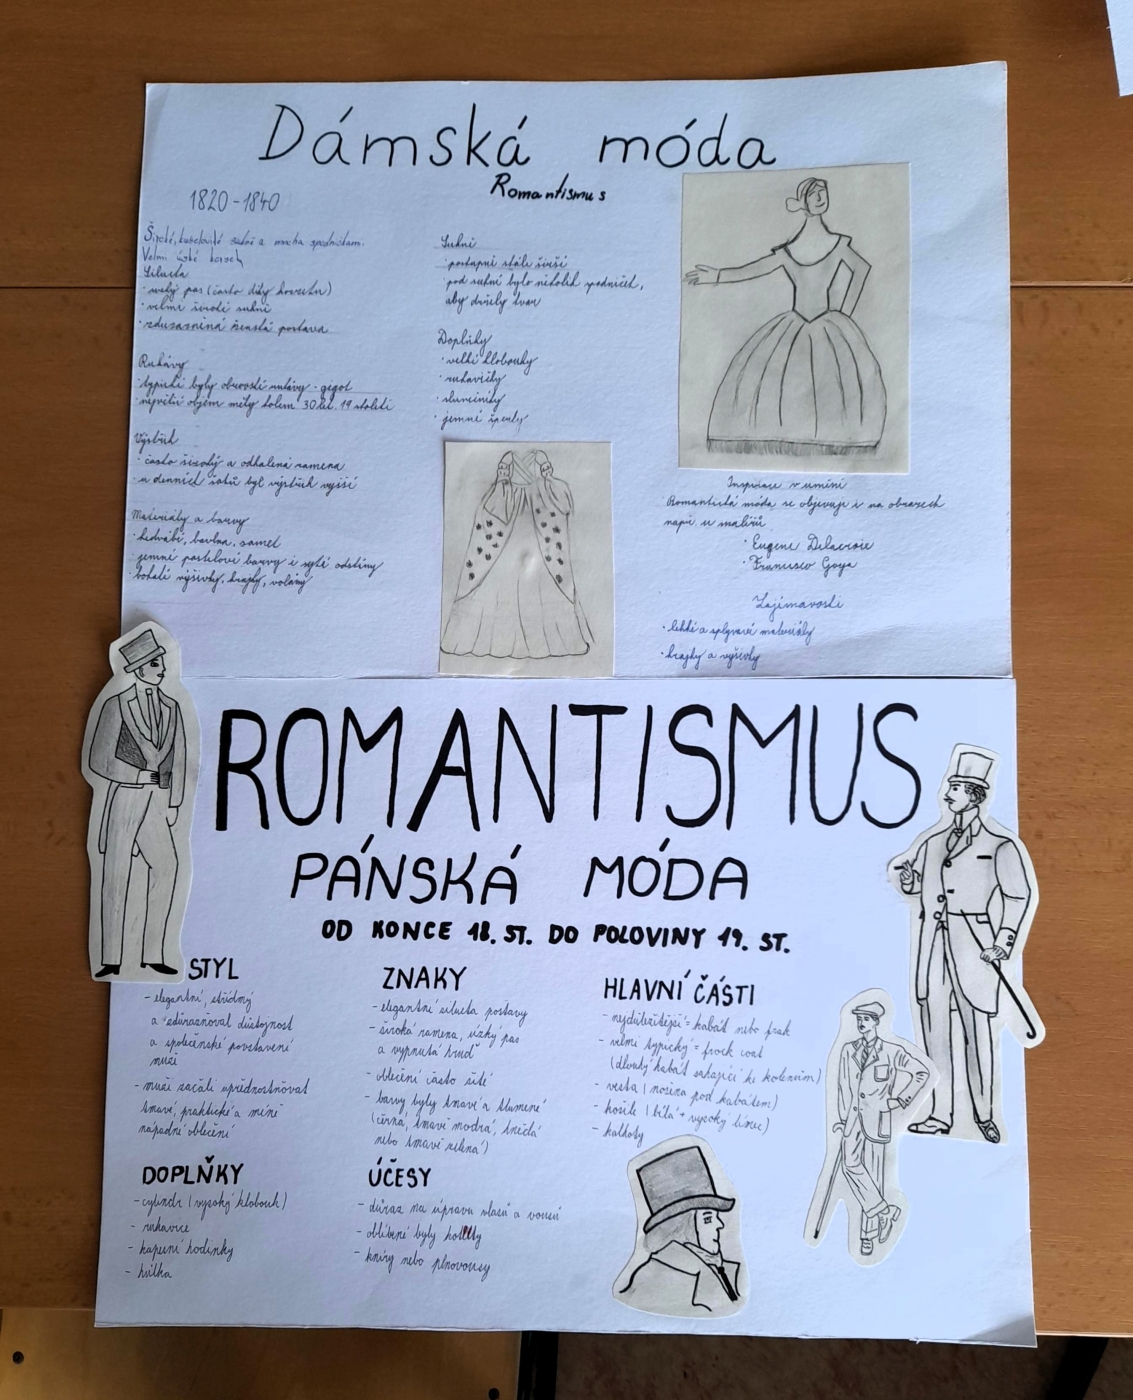 Dámská móda
Romantismus
1820-1840
Široké, kuželovité sukně a mnoha spodničkam.
Velmi úzké
Silueta
· velý pas (často díky korzetu)
· velmi široké sukně
· zdůrazněná ženská postava
Rukávy
· typické byly obrovské rukávy - gegot
· největší objem měly kolem 30 let. 19 století
Výstřih
· často široký a odhalená ramena
· u denních šatů byl výstřih vyšší
Materiály a barvy
· hedvábí, bavlna, samet
· jemné pastelové barvy i syté odstíny
· bohaté výšivky, krajky, volány
Sukně
· postupně stále širší
· pod sukní bylo několik spodniček,
aby držely tvar
Doplňky
· velké klobouky
· rukavičky
· slunečníky
· jemné šperky
Inspirace v umění
Romantická móda se objevuje i na obrazech
např. u malířů
· Eugene Delacroix
· Francisco Goya
Zajímavosti
· lehké a splývavé materiály
· krajky a výšivky
ROMANTISMUS
PÁNSKÁ MÓDA
OD KONCE 18. ST. DO POLOVINY 19. ST.
STYL
- elegantní, střídmý
a zdůrazňoval důstojnost
a společenské postavení
muži
- muži začali upřednostňovat
tmavé, praktické a méně
nápadné oblečení
ZNAKY
- elegantní silueta postavy
- široká ramena, úzký pas
a vypnutá hruď
- oblečení často šité
- barvy byly tmavé a tlumené
(černá, tmavě modrá, hnědá
nebo tmavě zelená)
HLAVNÍ ČÁSTI
- nejdůležitější = kabát nebo frak
- velmi typický = frock coat
(dlouhý kabát sahající ke kolenům)
- vesta (nošena pod kabátem)
- košile (bílá + vysoký límec)
- kalhoty
DOPLŇKY
- cylindr (vysoký klobouk)
- rukavice
- kapesní hodinky
- hůlka
ÚČESY
- důraz na úpravu vlasů a vousů
- oblíbené byly kotlety
- kníry nebo plnovousy